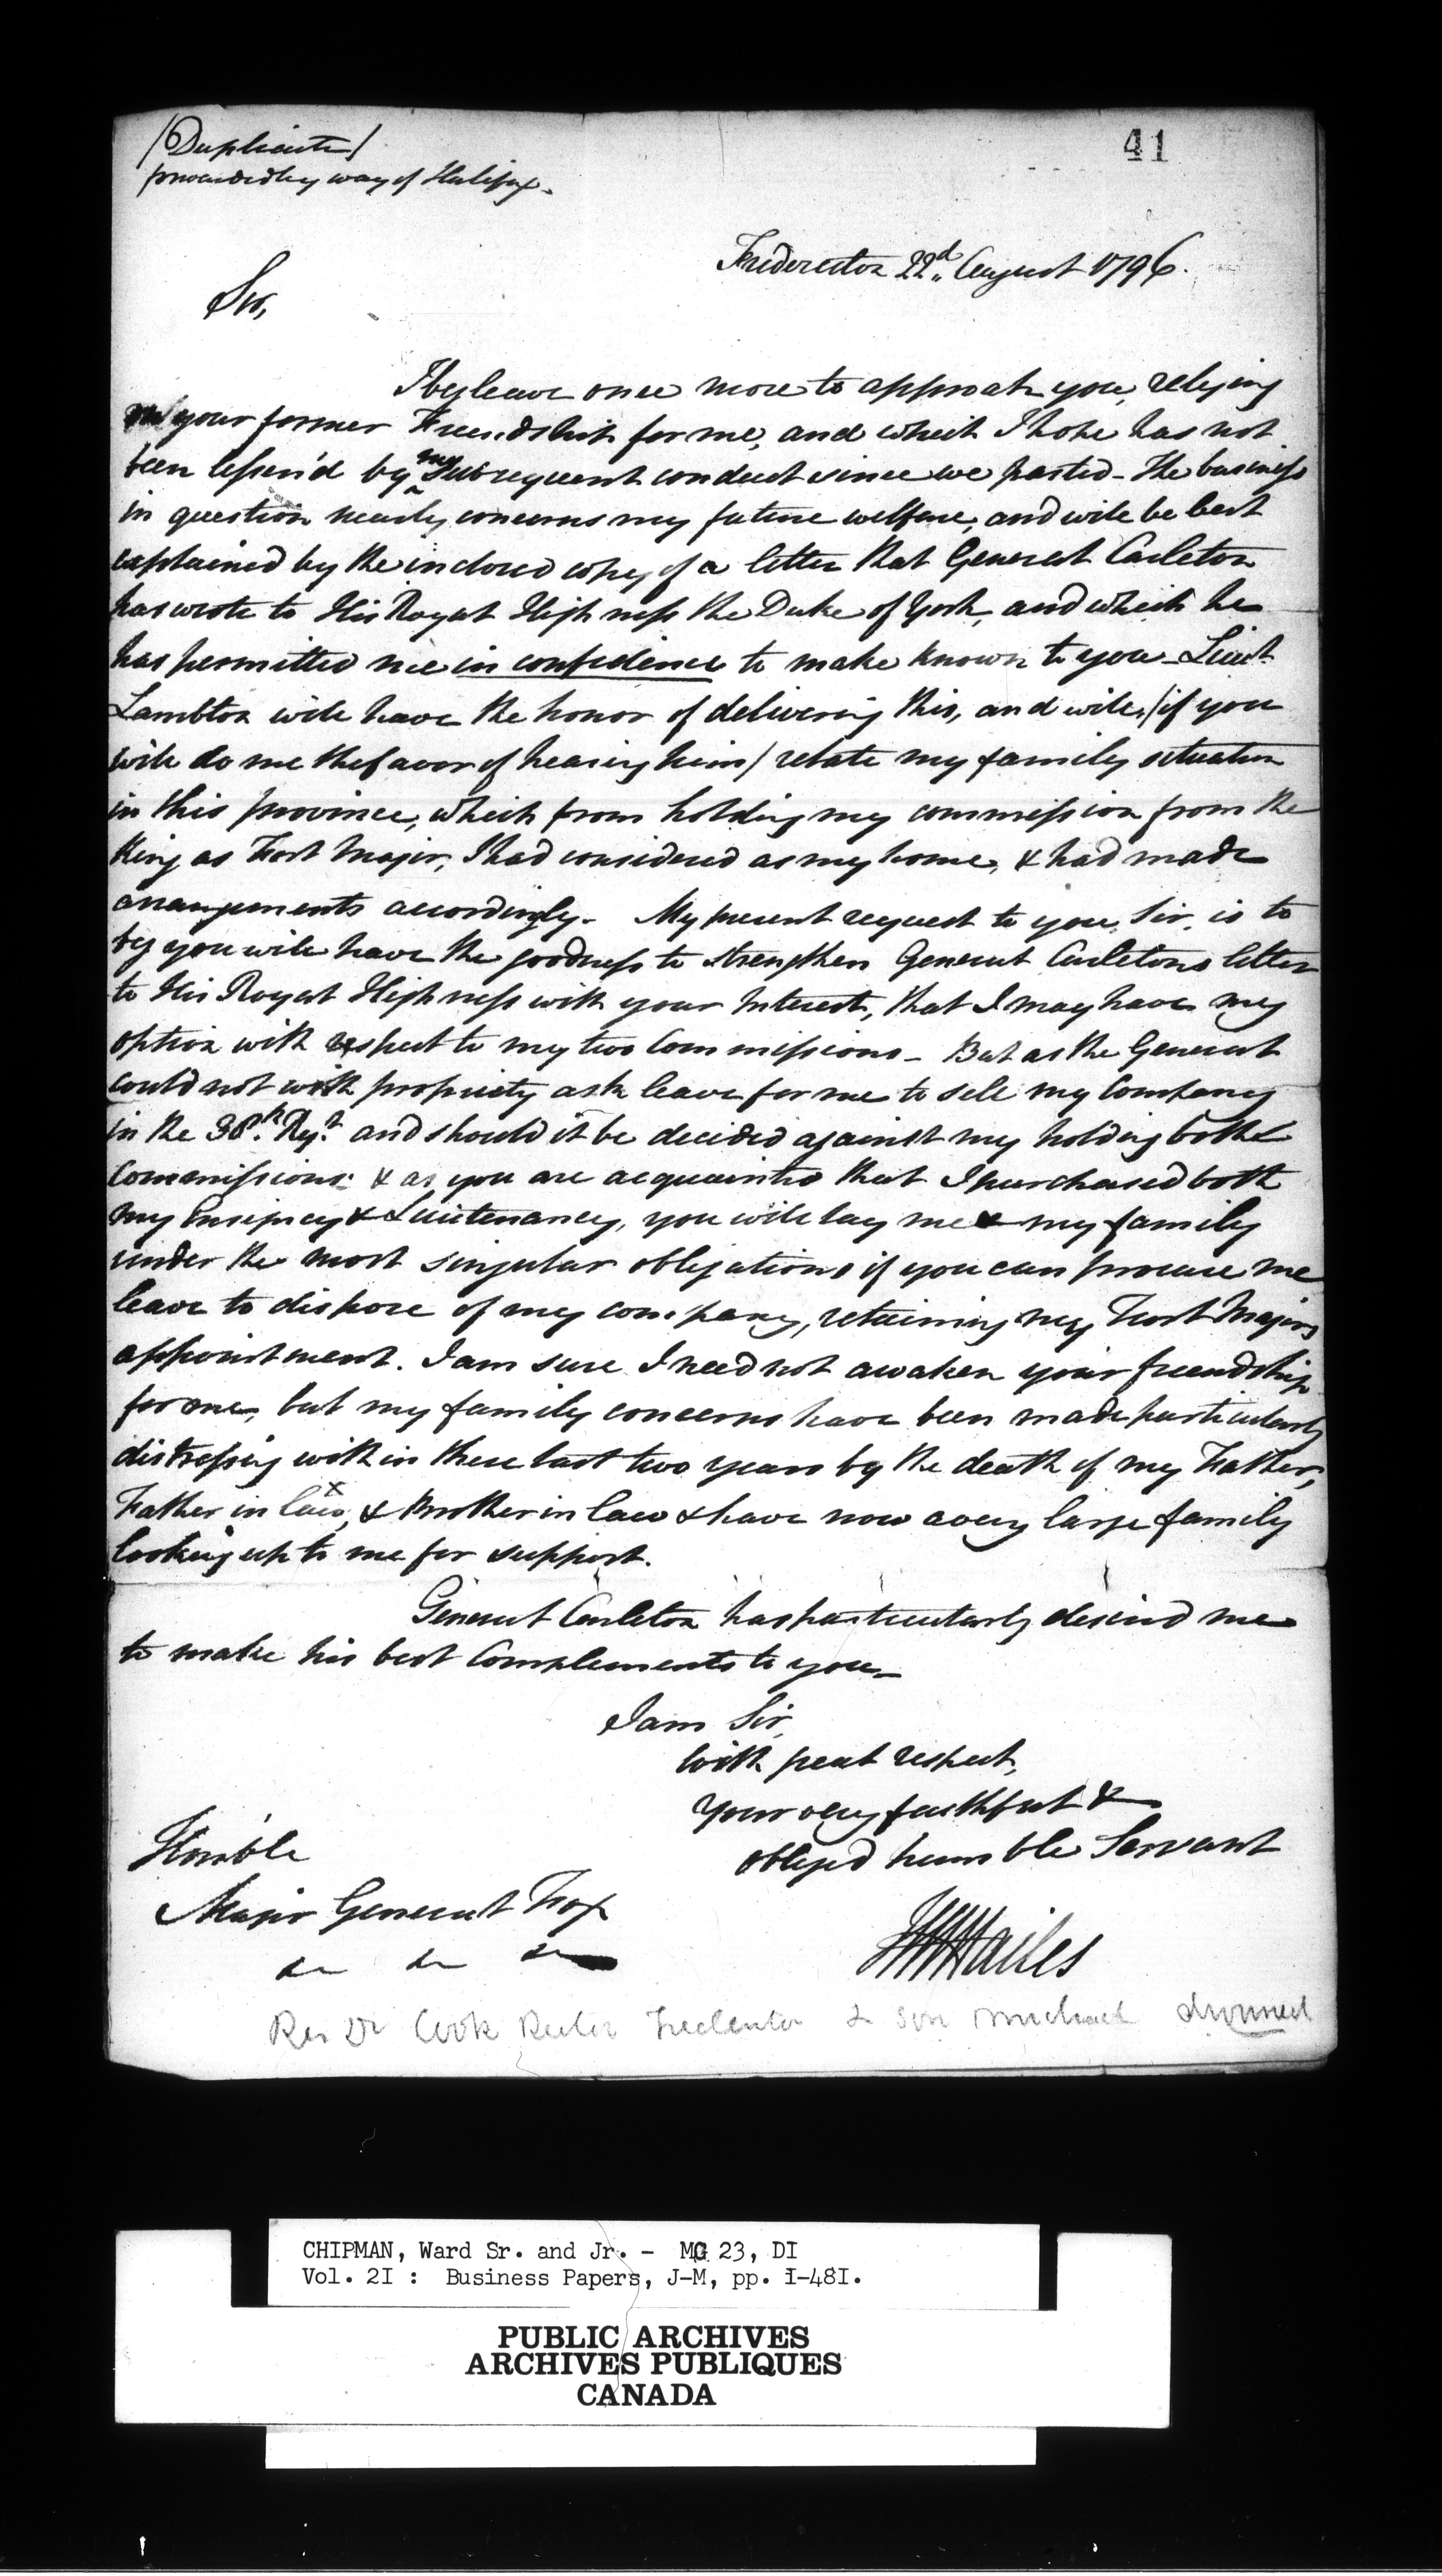 /Duplicate/
forwarded by way of Halifax.
41
Fredericton 22d. August 1796.
Sir,
I beg leave once more to approach you, relying
on your former Friendship for me, and which I hope has not
been lessen'd by my subsequent conduct since we parted - The business
in question nearly concerns my future welfare, and will be best
explained by the inclosed copy of a letter that General Carleton
has wrote to His Royal Highness the Duke of York, and which he
has permitted me in confidence to make known to you - Lieut.
Lambton will have the honor of delivering this, and will, /if you
will do me the favor of hearing him/ relate my family situation
in this province, which from holding my commission from the
King as Fort Major, I had considered as my home, & had made
arrangements accordingly. My present request to you, Sir, is to
beg you will have the goodness to strengthen General Carletons letter
to His Royal Highness with your Interest, that I may have my
option with respect to my two Commissions - But as the General
could not with propriety ask leave for me to sell my Company
in the 38th. Regt. and should it be decided against my holding both
Commissions & as you are acquainted that I purchased both
my Ensigncy & Lieutenancy, you will lay me & my family
under the most singular obligations if you can procure me
leave to dispose of my company, retaining my Fort Majors
appointment. I am sure I need not awaken your friendship
for me, but my family concerns have been made particularly
distressing within these last two years by the death of my Father,
Father in law, x & Brother in law & have now a very large family
looking up to me for support.
General Carleton has particularly desired me
to make his best Complements to you -
I am Sir,
with great respect,
Your very faithful &
obliged humble Servant
Honble
Major General Fox
&c &c &c
WHHailes
Rev Dr Cook Rector Fredericton & son Michael drowned
CHIPMAN, Ward Sr. and Jr. - MG 23, DI
Vol. 2I : Business Papers, J-M, pp. I-48I.
PUBLIC ARCHIVES
ARCHIVES PUBLIQUES
CANADA